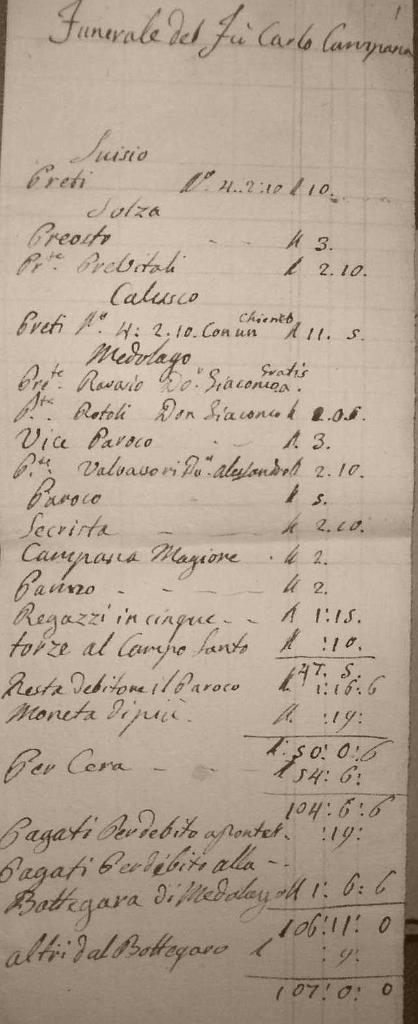 1
Funerale del Fù Carlo Campana
Suisio
Preti N.º 4..2:10 £ 10.
Solza
Preosto - - £ 3.
Pr.te Previtali £ 2.10.
Calusco
Preti N.º 4: 2.10. Con un Chierico £ 11. 5.
Medolago
Pre.te Ravasio Do.n Giacomo Gratis
P.te Rotoli Don Giacomo £ 2.05.
Vice Paroco - £ 3.
P.te Valvasori Do.n Alessandro £ 2.10.
Paroco £ 5.
Secrista - - £ 2.10.
Campana Magiore . £ 2.
Panno - - - £ 2.
Regazzi in cinque - - £ 1:15.
torze al Campo Santo £ :10.
£ 47. 5.
Resta debitore il Paroco £. 1:16:6
Moneta di più. £. :19:
£: 50: 0: 6
Per Cera - - £ 54: 6:
104: 6: 6
Pagati Per debito :19:
Pagati Per debito alla - -
Bottegara di Medolago £ 1: 6: 6
106: 11: 0
altri dal Bottegaro £ : 9:
107: 0: 0